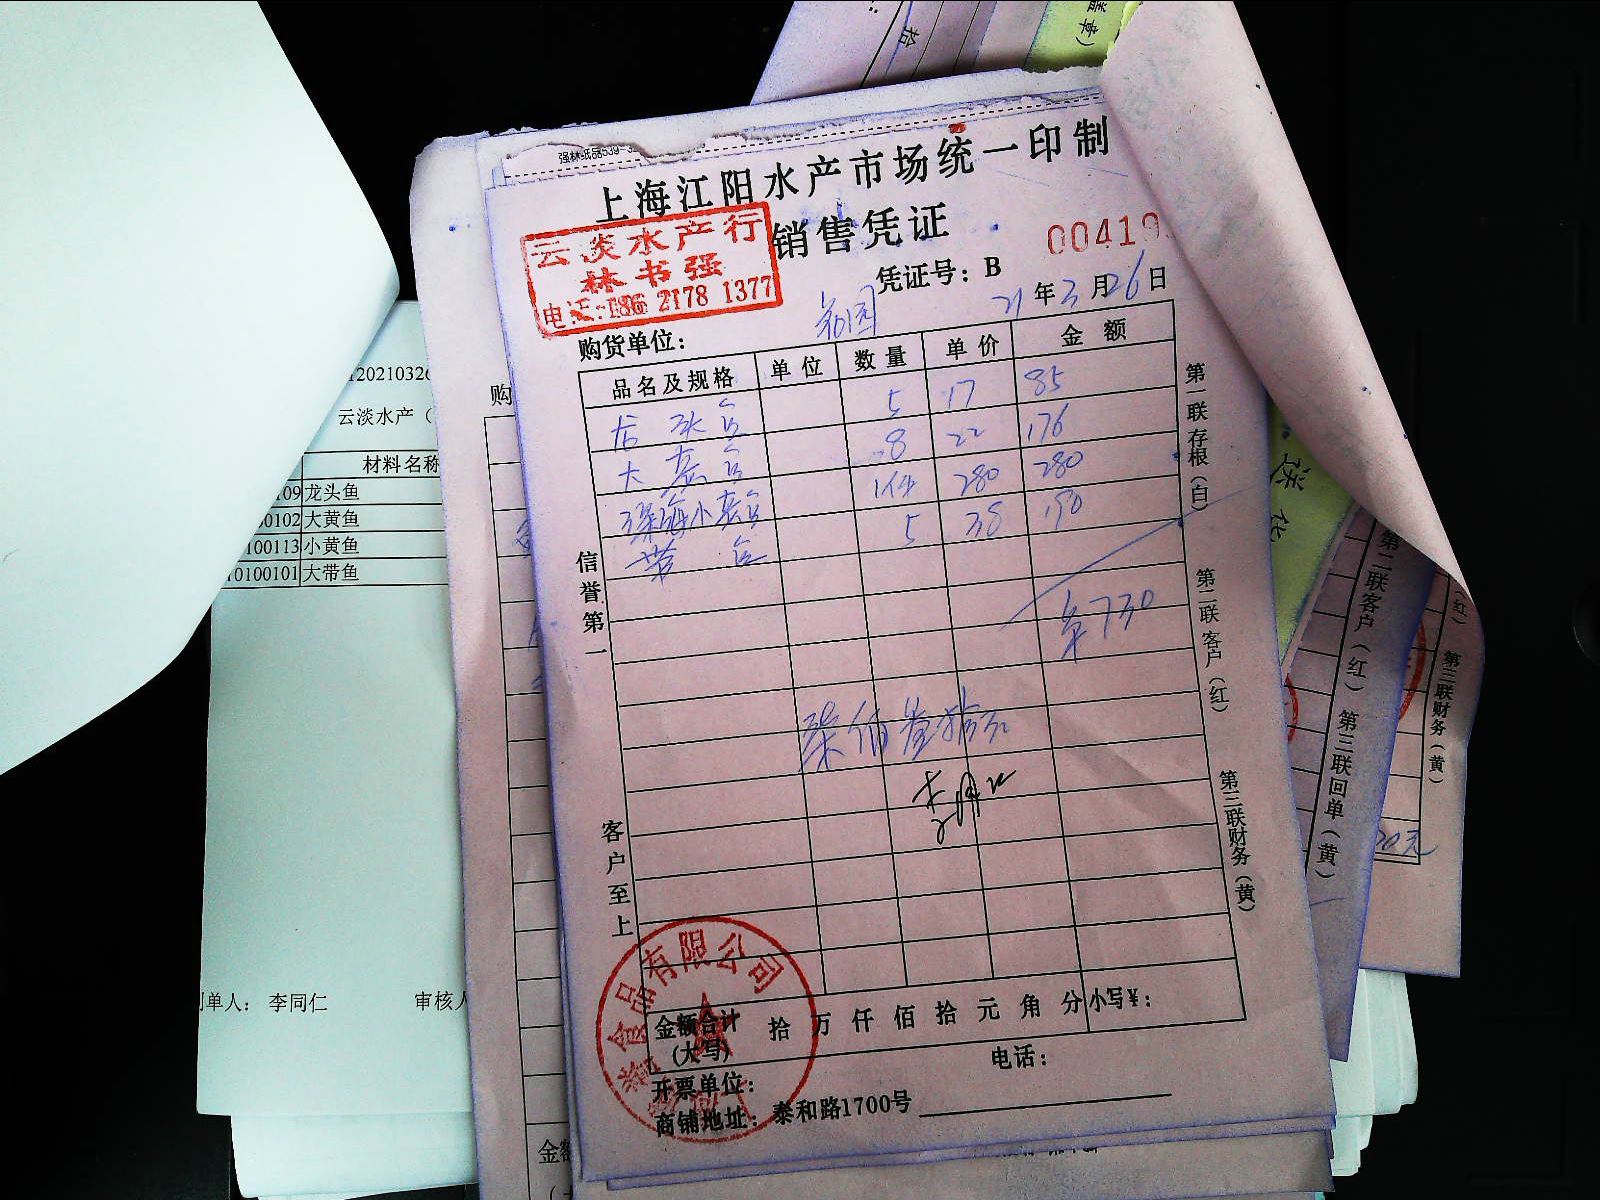 强林纸品539-3
上海江阳水产市场统一印制
销售凭证
云淡水产行
林书强
电话:186 2178 1377
00419
凭证号：B
21年3月26日
购货单位：
品名及规格 单位 数量 单价 金额
龙头鱼 5 17 85
大黄鱼 8 22 176
深海小黄鱼 1件 280 280
带鱼 5 38 190
730
信誉第一
客户至上
第一联存根（白）
第二联客户（红）
第三联财务（黄）
金额合计（大写） 拾 万 仟 佰 拾 元 角 分 小写¥：
开票单位：
电话：
商铺地址：泰和路1700号
食品有限公司
12021032
云淡水产（
材料名称
109 龙头鱼
0102 大黄鱼
100113 小黄鱼
10100101 大带鱼
制单人： 李同仁
审核人
购
金额
拾
盖章）
送
第二联客户（红）
第三联回单（黄）
（红）
第三联财务（黄）
00元